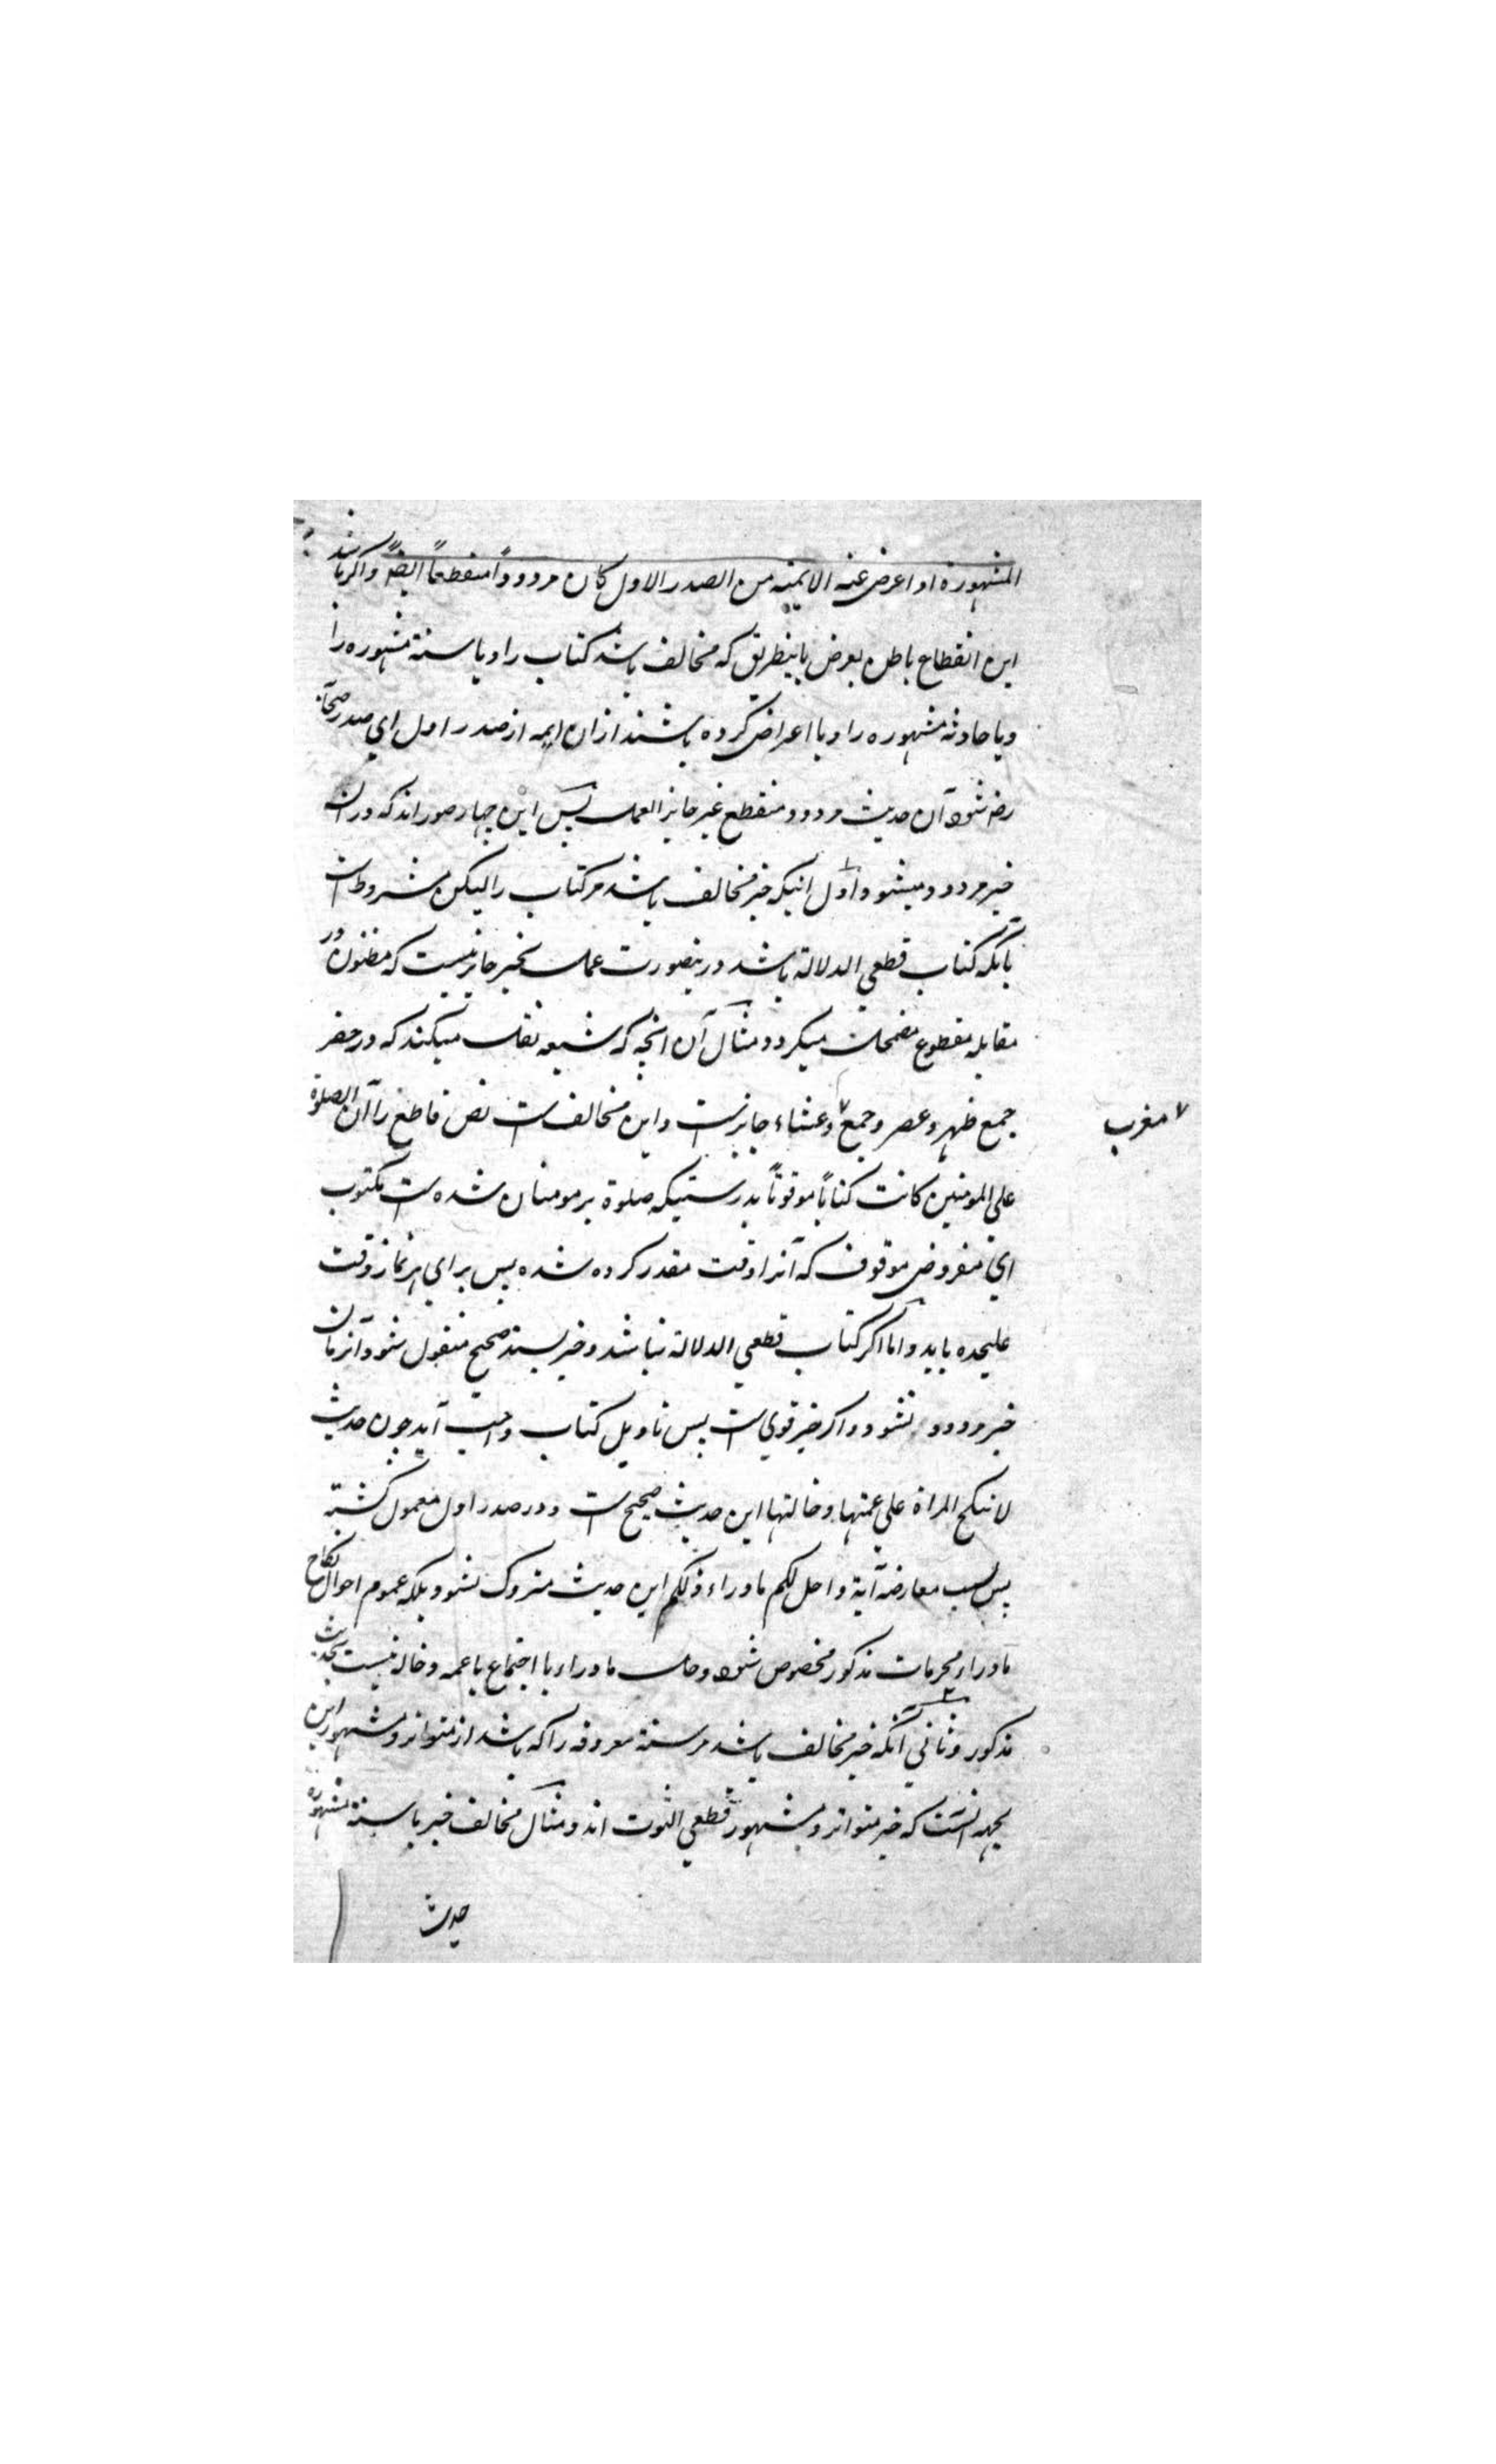 المشهورة او اعرض عنه الایمة من الصدر الاول کان مردودا منقطعاً ایضاً واکر باشد
این انقطاع باطن بعرض باینطریق که مخالف باشد کتاب را ویا سنة مشهوره را
ویا حادثه مشهوره را ویا اعراض کرده باشند ازان ایمه از صدر اول ای صدر صحابه
رضه شود آن حدیث مردود منقطع غیر جایز العمل پس این چهار صور اند که دران
خبر مردود میشود اول اینکه خبر مخالف باشد مر کتاب را لیکن مشروط است
بآنکه کتاب قطعي الدلالة باشد درینصورت عمل بخبر جایز نیست که مظنون در
مقابله مقطوع مضمحل میکردد ومثال آن انچه که شیعه نقل میکنند که در حضر
جمع ظهر وعصر وجمع ٧ وعشاء جایز است واین مخالف است نص قاطع را ان الصلوة
٧ مغرب
علي المومنین کانت کتاباً موقوتاً بدرستیکه صلوة بر مومنان شده است مکتوب
اي مفروض موقوف که آنرا وقت مقدر کرده شده پس براي هر نماز وقت
علیحده باید واما اکر کتاب قطعي الدلالة نباشد وخبر بسند صحیح منقول شود آنزمان
خبر مردود نشود واکر خبر قوي است پس تاویل کتاب واجب آید چون حدیث
لا تنکح المراة علي عمتها وخالتها این حدیث صحیح است ودر صدر اول معمول کشته
پس بسبب معارضه آیة واحل لکم ما وراء ذلکم این حدیث متروک نشود بلکه عموم احوال نکاح
ماوراء محرمات مذکور مخصوص شود وحل ماوراء با اجتماع با عمه وخاله نیست بحدیث
مذکور وثاني آنکه خبر مخالف باشد مر سنة معروفه را که باشد از متواتر ومشهور این
بجهة انست که خبر متواتر ومشهور قطعي الثبوت اند ومثال مخالف خبر با سنة مشهوره
حدیث